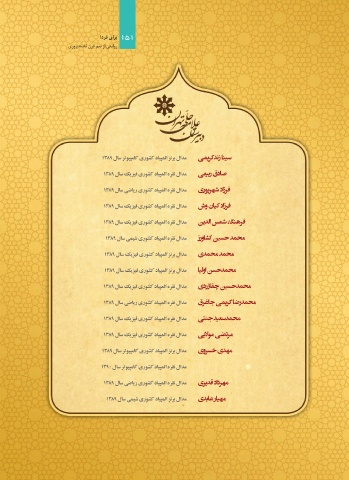 ۱۵۱
برای فردا
روایتی از نیم قرن نخبه‌پروری
دبیرستان علامه حلی تهران
سینا زندکریمی مدال برنز المپیاد کشوری کامپیوتر سال ۱۳۸۹
صادق ربیعی مدال نقره المپیاد کشوری فیزیک سال ۱۳۸۹
فرزاد شهریوری مدال نقره المپیاد کشوری ریاضی سال ۱۳۸۹
فرزاد کیان وش مدال نقره المپیاد کشوری فیزیک سال ۱۳۸۹
فرهنگ شمس الدین مدال نقره المپیاد کشوری فیزیک سال ۱۳۸۹
محمد حسین کشاورز مدال نقره المپیاد کشوری شیمی سال ۱۳۸۹
محمد محمدی مدال برنز المپیاد کشوری فیزیک سال ۱۳۸۹
محمدحسن اولیا مدال برنز المپیاد کشوری فیزیک سال ۱۳۸۹
محمدحسین مدال نقره المپیاد کشوری فیزیک سال ۱۳۸۹
محمدرضا کریمی مدال نقره المپیاد کشوری ریاضی سال ۱۳۸۹
محمدسعید مدال نقره المپیاد کشوری فیزیک سال ۱۳۸۹
مرتضی مولایی مدال نقره المپیاد کشوری فیزیک سال ۱۳۸۹
مهدی خسروی مدال برنز المپیاد کشوری کامپیوتر سال ۱۳۸۹
مدال نقره المپیاد کشوری کامپیوتر سال ۱۳۹۰
مهرداد قدیری مدال نقره المپیاد کشوری ریاضی سال ۱۳۸۹
مهیار عابدی مدال برنز المپیاد کشوری شیمی سال ۱۳۸۹